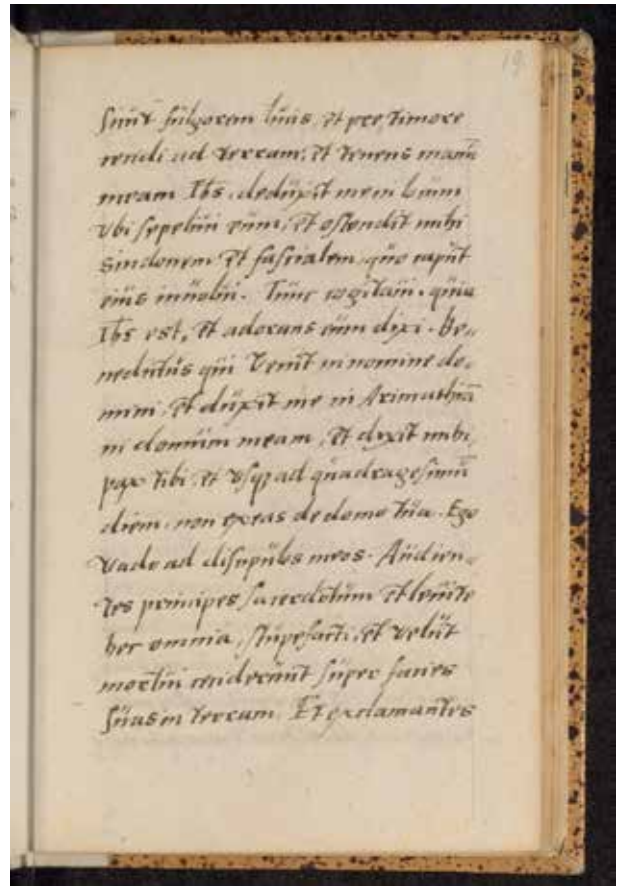 19
Sicut fulgorem lucis, et prę timore
cecidi ad terram, et tenens manū
meam Ihs. deduxit me in locum
Vbi sepeliui eum, et ostendit mihi
Sindonem et fascialem, quo caput
eius inuolui. Tunc cogitaui. quia
Ihs est, et adorans eum dixi. Be,,
nedictus qui Venit in nomine do,,
mini. et duxit me in Arimathiā
in domum meam, et dixit mihi,
pax tibi, et Vsq; ad quadragesimū
diem. non exeas de domo tua. Ego
Vado ad discipulos meos. Audien,,
tes principes sacerdotum et leuite
hec omnia, stupefacti, et velut
mortui ceciderunt super facies
suas in terram. Et exclamantes